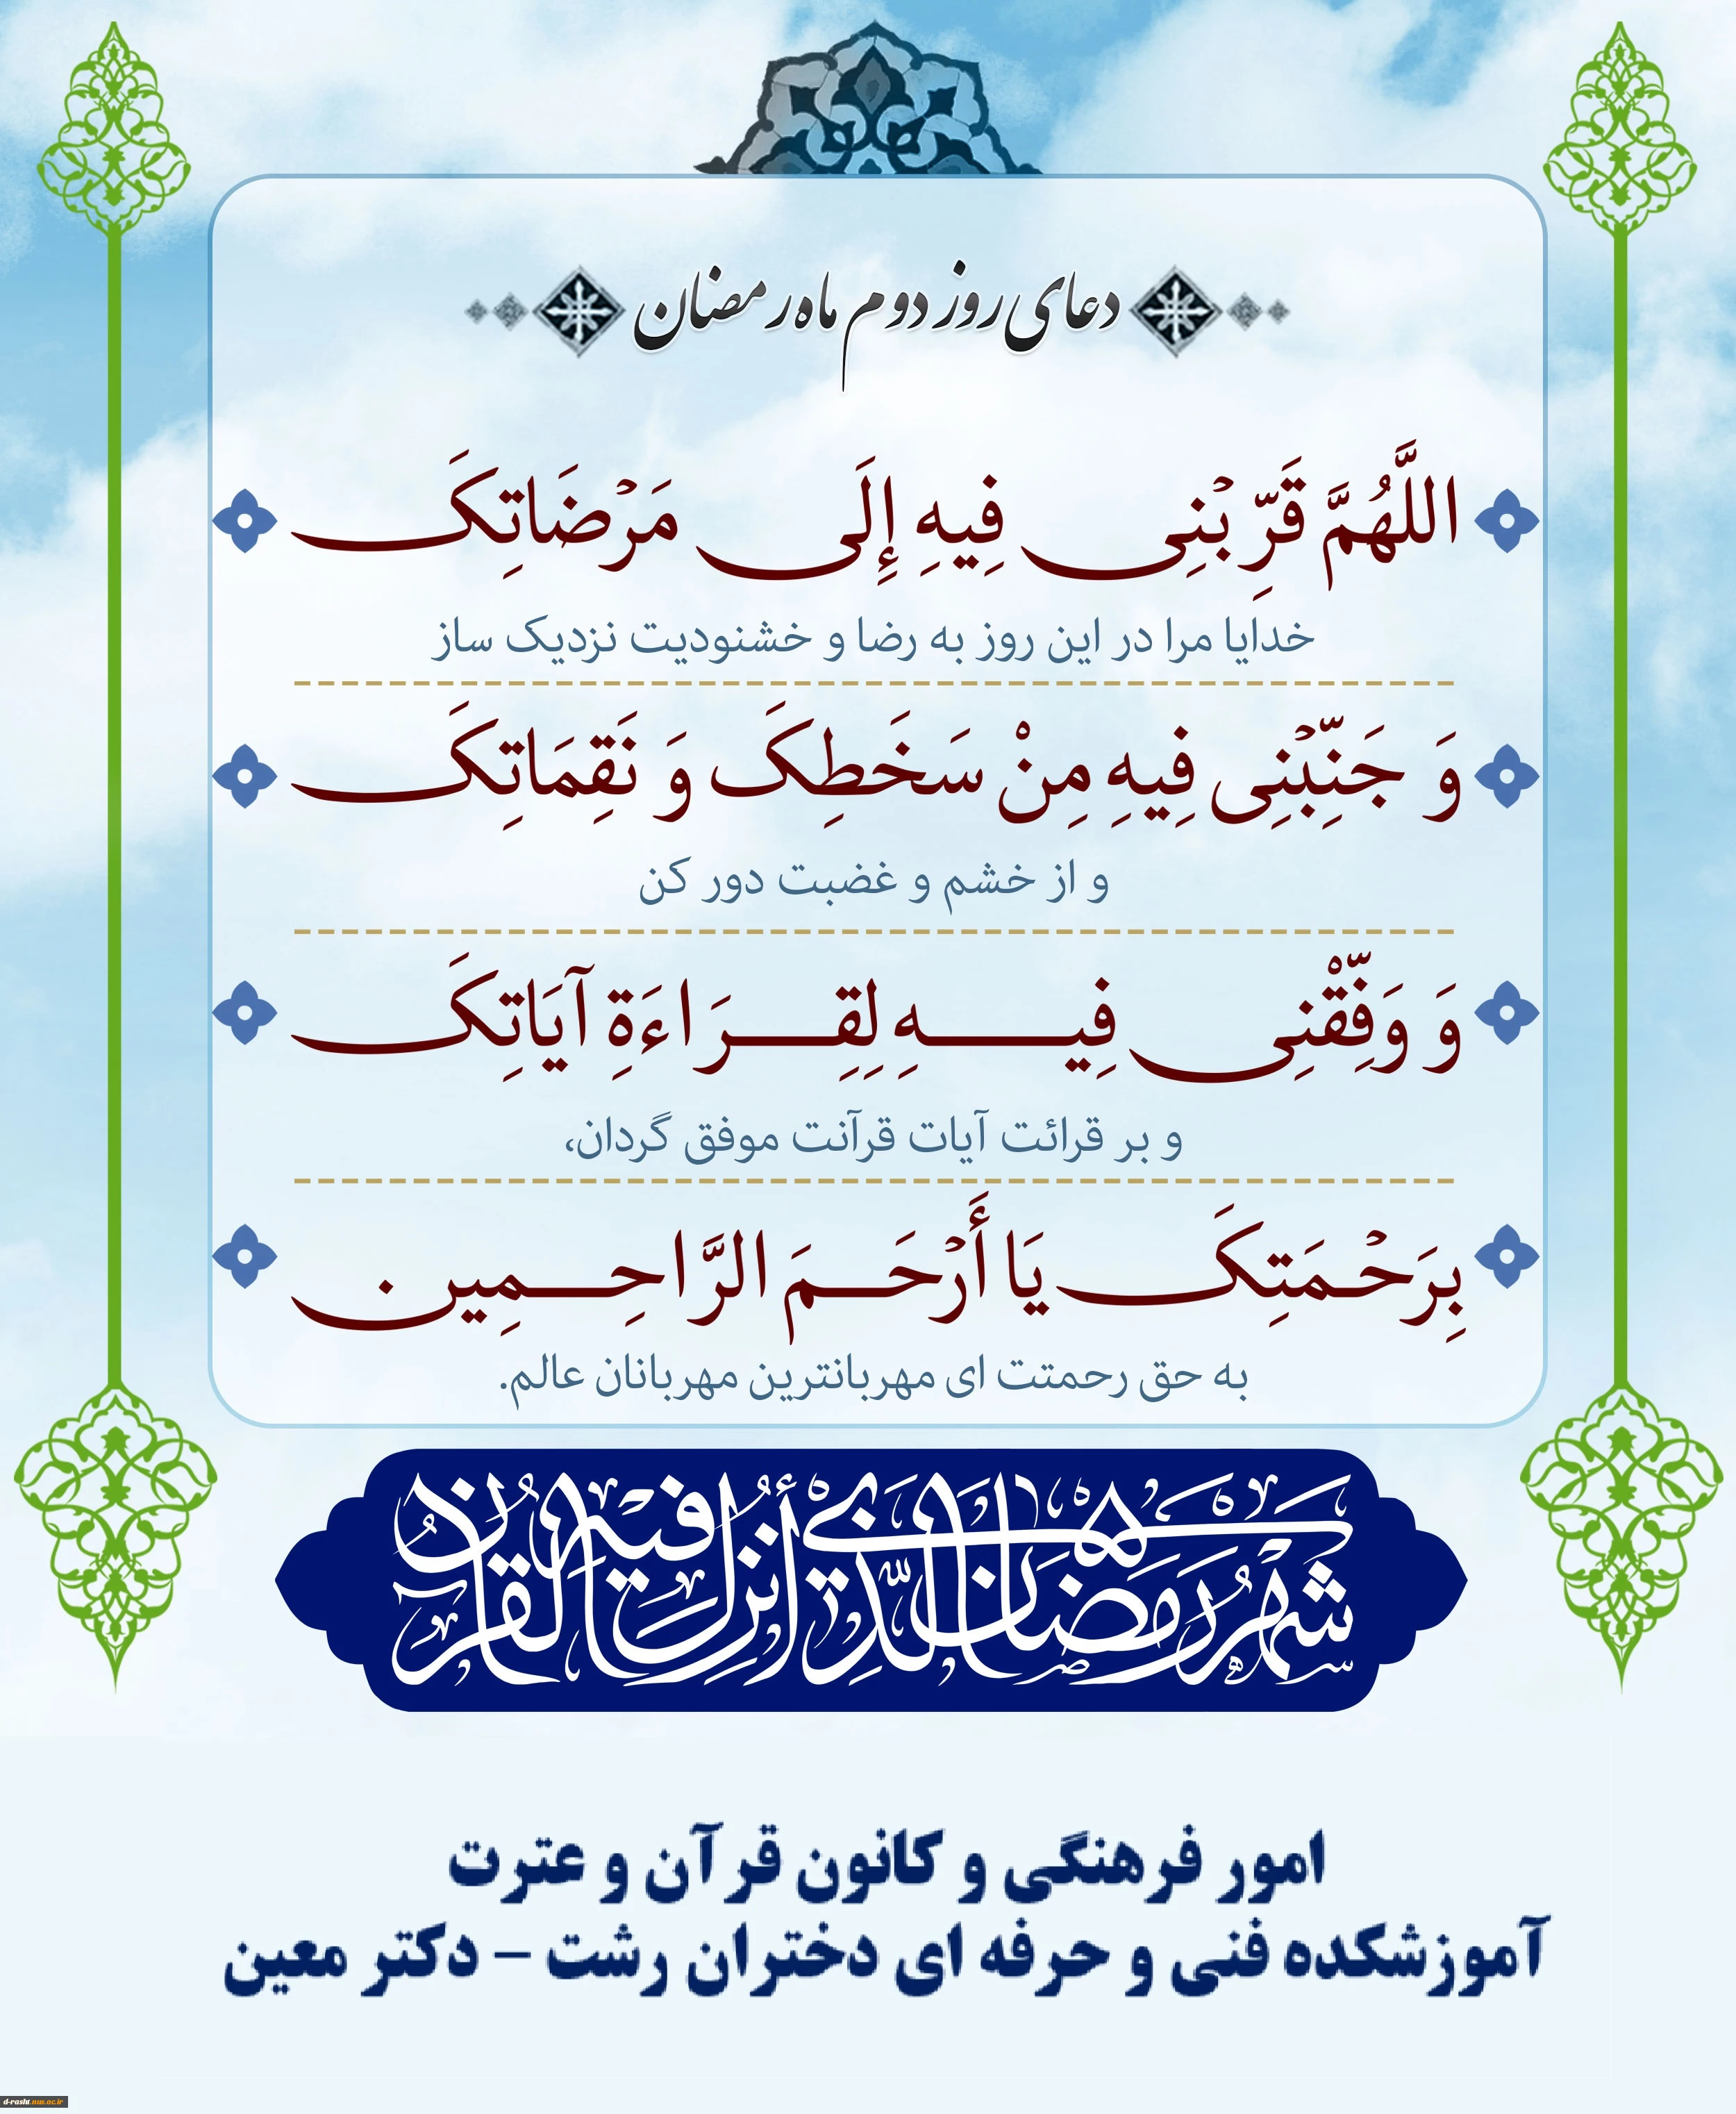 دعای روز دوم ماه رمضان
اللَّهُمَّ قَرِّبْنِی فِیهِ إِلَی مَرْضَاتِکَ
خدایا مرا در این روز به رضا و خشنودیت نزدیک ساز
وَ جَنِّبْنِی فِیهِ مِنْ سَخَطِکَ وَ نَقِمَاتِکَ
و از خشم و غضبت دور کن
وَ وَفِّقْنِی فِیهِ لِقِرَاءَةِ آیَاتِکَ
و بر قرائت آیات قرآنت موفق گردان،
بِرَحْمَتِکَ یَا أَرْحَمَ الرَّاحِمِین
به حق رحمتت ای مهربانترین مهربانان عالم.
شهر رمضان الذی أنزل فیه القرآن
امور فرهنگی و کانون قرآن و عترت
آموزشکده فنی و حرفه ای دختران رشت – دکتر معین
d-rasht.nus.ac.ir